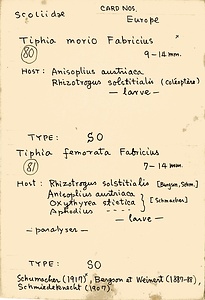 Scoliidae CARD NOS.
Europe
Tiphia morio Fabricius
80 9-14 mm.
HOST: Anisoplia austriaca
Rhizotrogus solstitialis (Coléoptère)
— larve —
TYPE: SO
Tiphia femorata Fabricius
81 7-14 mm.
Host: Rhizotrogus solstitialis [Borgson, Schm.]
Anisoplius austriaca
Oxythyrea stictica } [Schmacher]
Aphodius - - - -
— larve —
— paralyses —
TYPE: SO
Schumacher (1917), Borgson et Weinert (1887-88),
Schmiedeknecht (1907)